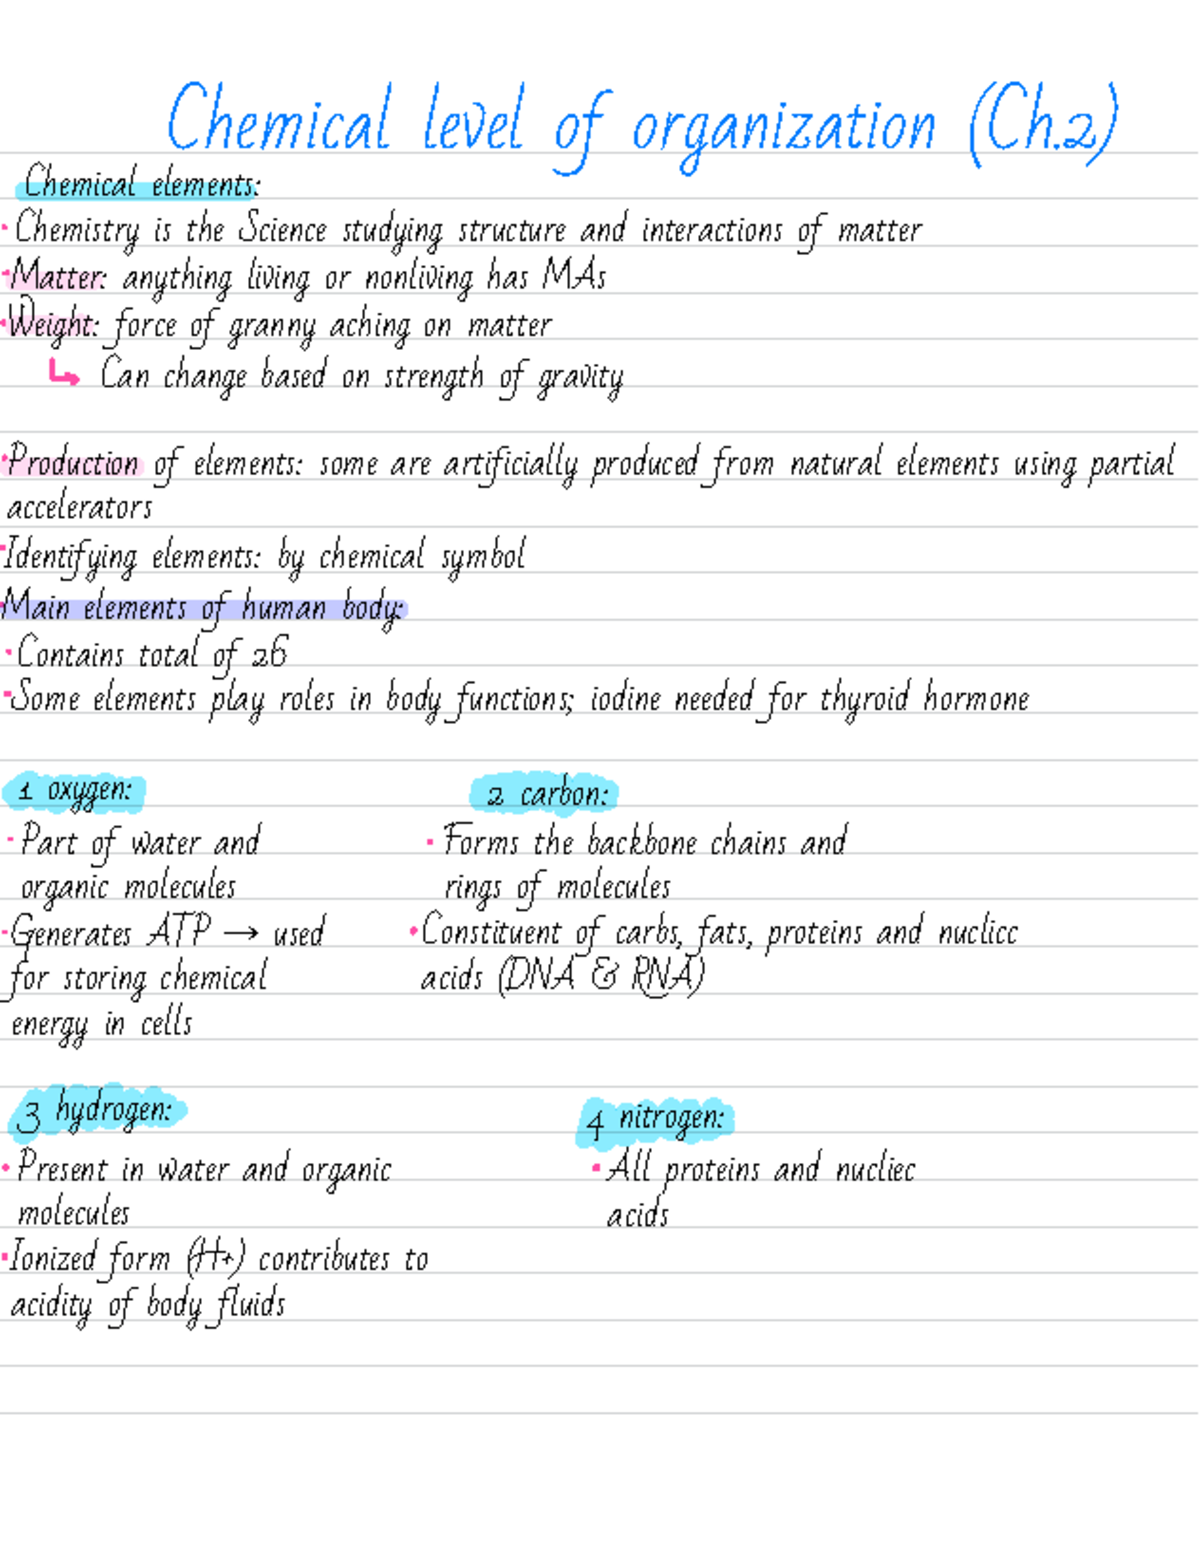 Chemical level of organization (Ch.2)
Chemical elements:
· Chemistry is the Science studying structure and interactions of matter
· Matter: anything living or nonliving has MAs
· Weight: force of granny aching on matter
↳ Can change based on strength of gravity
· Production of elements: some are artificially produced from natural elements using partial
accelerators
· Identifying elements: by chemical symbol
· Main elements of human body:
· Contains total of 26
· Some elements play roles in body functions; iodine needed for thyroid hormone
1 oxygen:
· Part of water and
organic molecules
· Generates ATP → used
for storing chemical
energy in cells
2 carbon:
· Forms the backbone chains and
rings of molecules
· Constituent of carbs, fats, proteins and nuclicc
acids (DNA & RNA)
3 hydrogen:
· Present in water and organic
molecules
· Ionized form (H+) contributes to
acidity of body fluids
4 nitrogen:
· All proteins and nucliec
acids